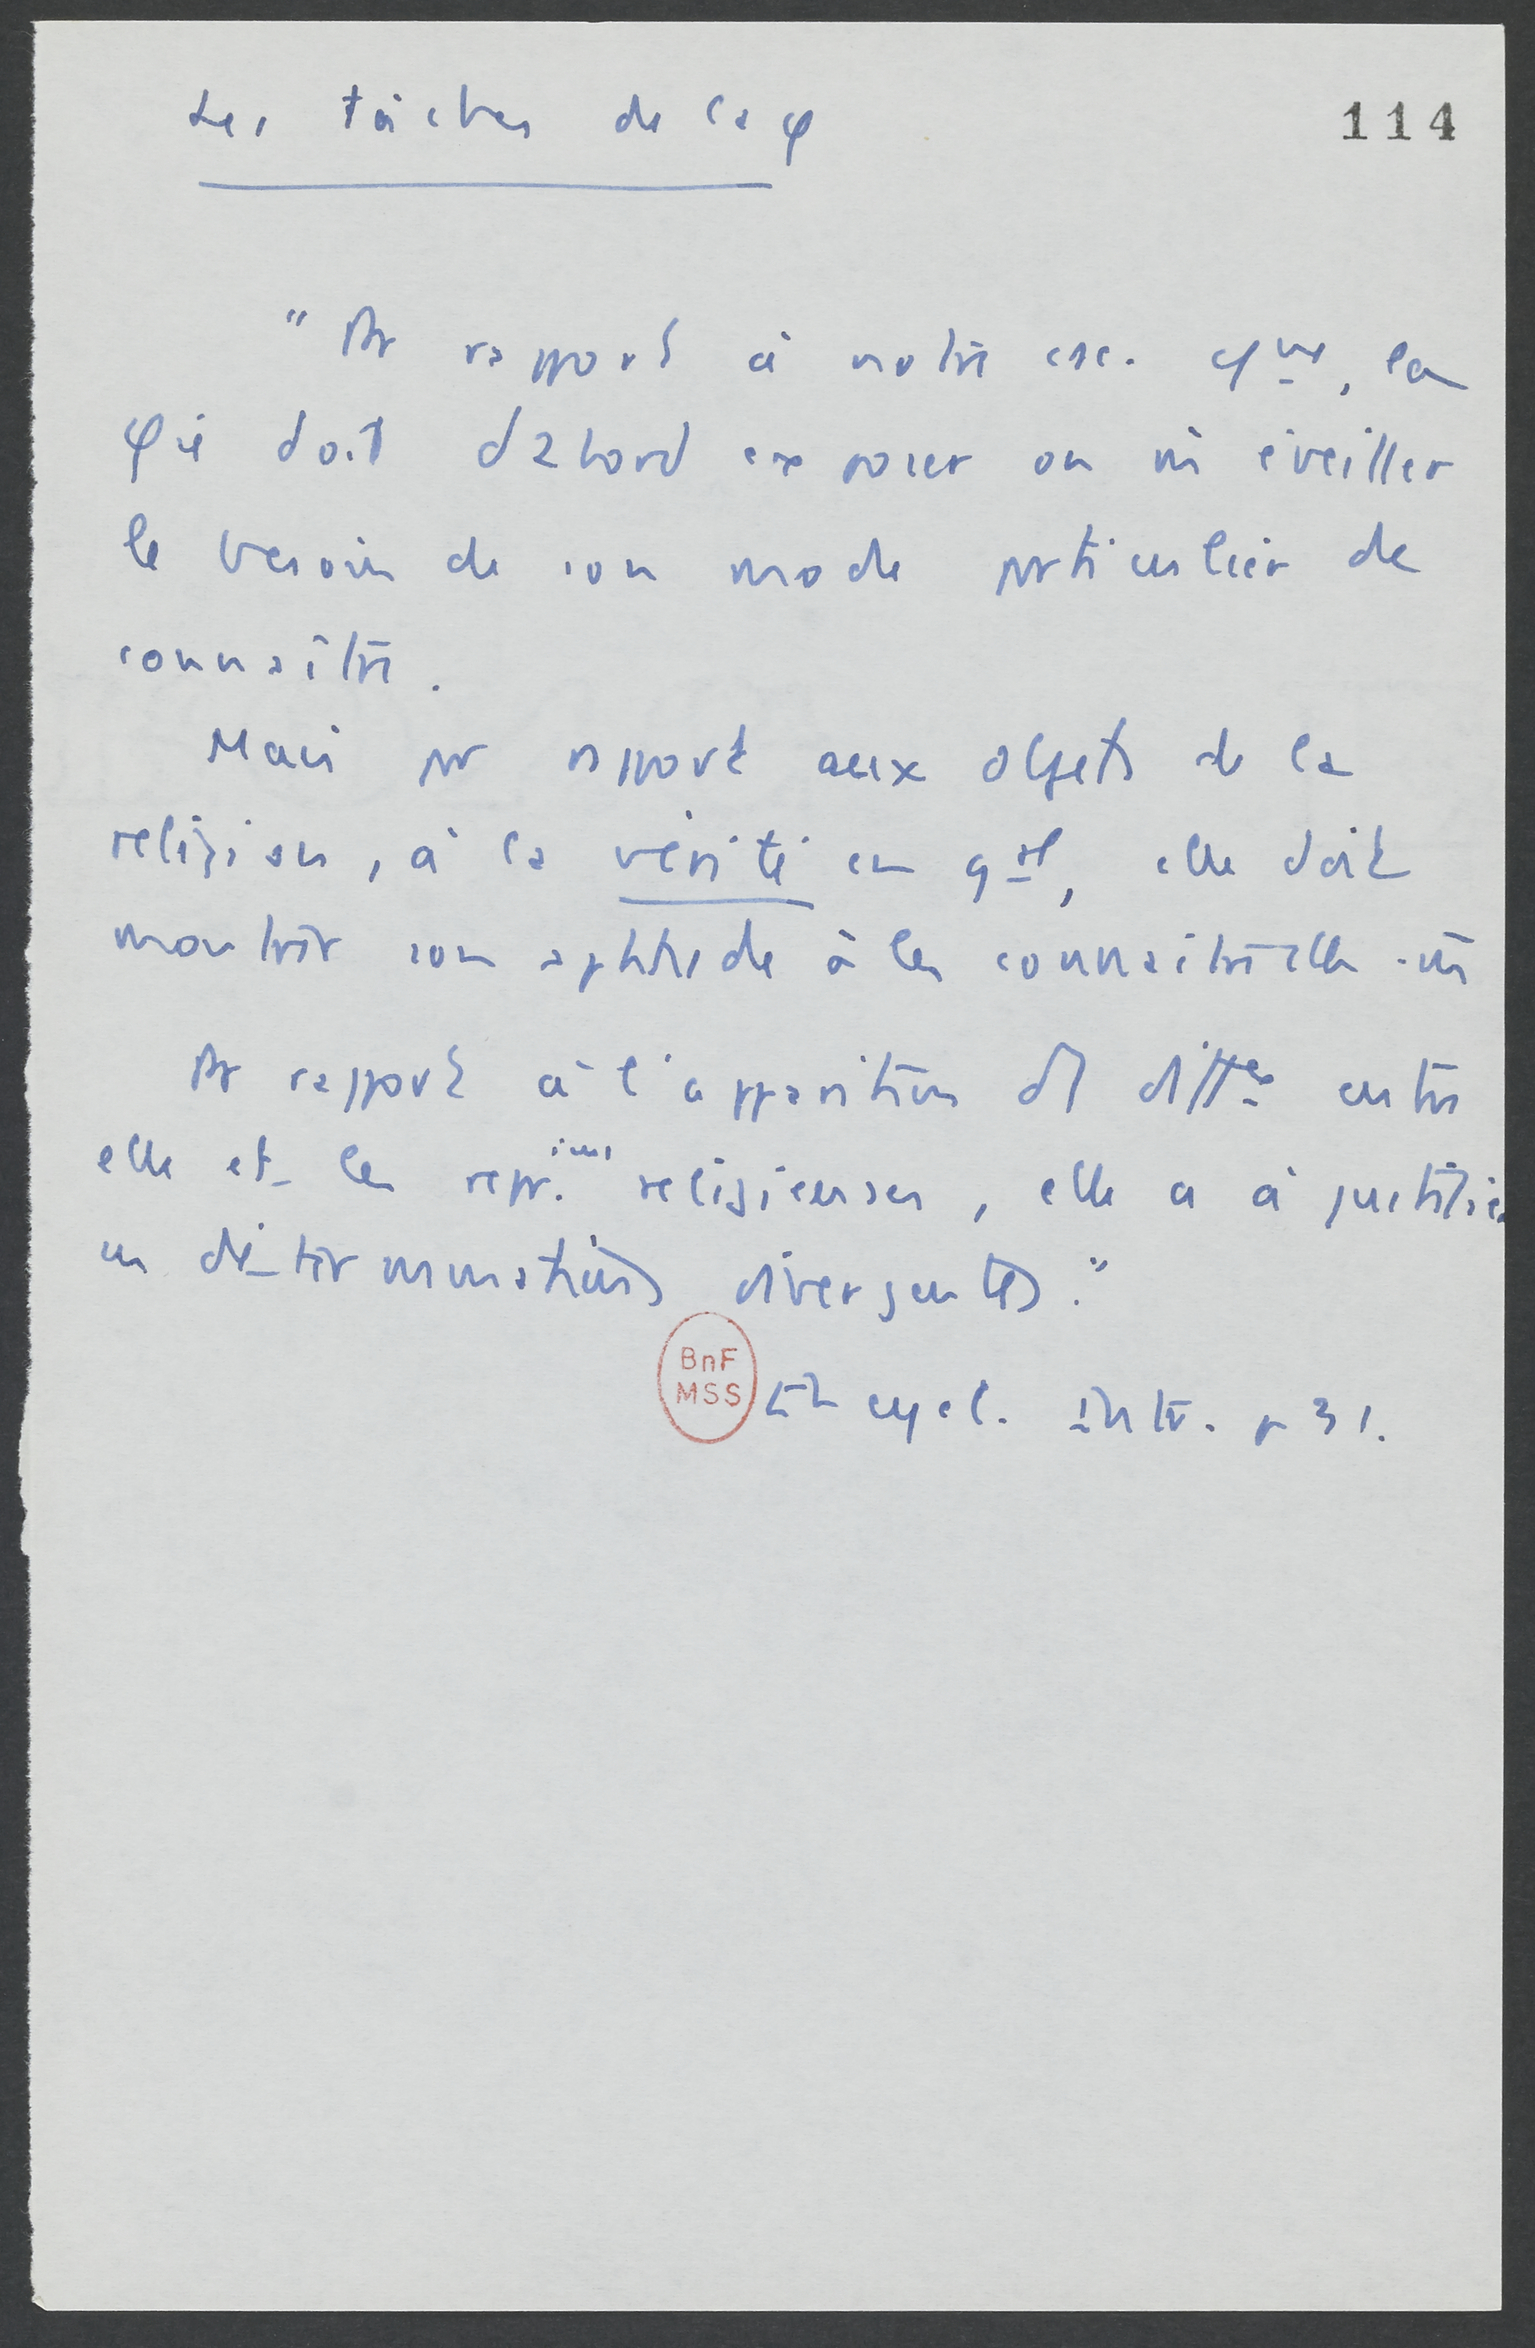 Les tâches de la φ
114
" Par rapport à notre csc. que, la
φie doit d'abord exposer ou m̂ éveiller
le besoin de son mode particulier de
connaître.
Mais par rapport aux objets de la
religion, à la vérité en gal, elle doit
montrer son aptitude à les connaître elle-m̂
Par rapport à l'apparition de diffces entre
elle et les repr.ions religieuses, elle a à justifier
ses déterminations divergentes."
BnF
MSS
Encycl. Intr. p 31.